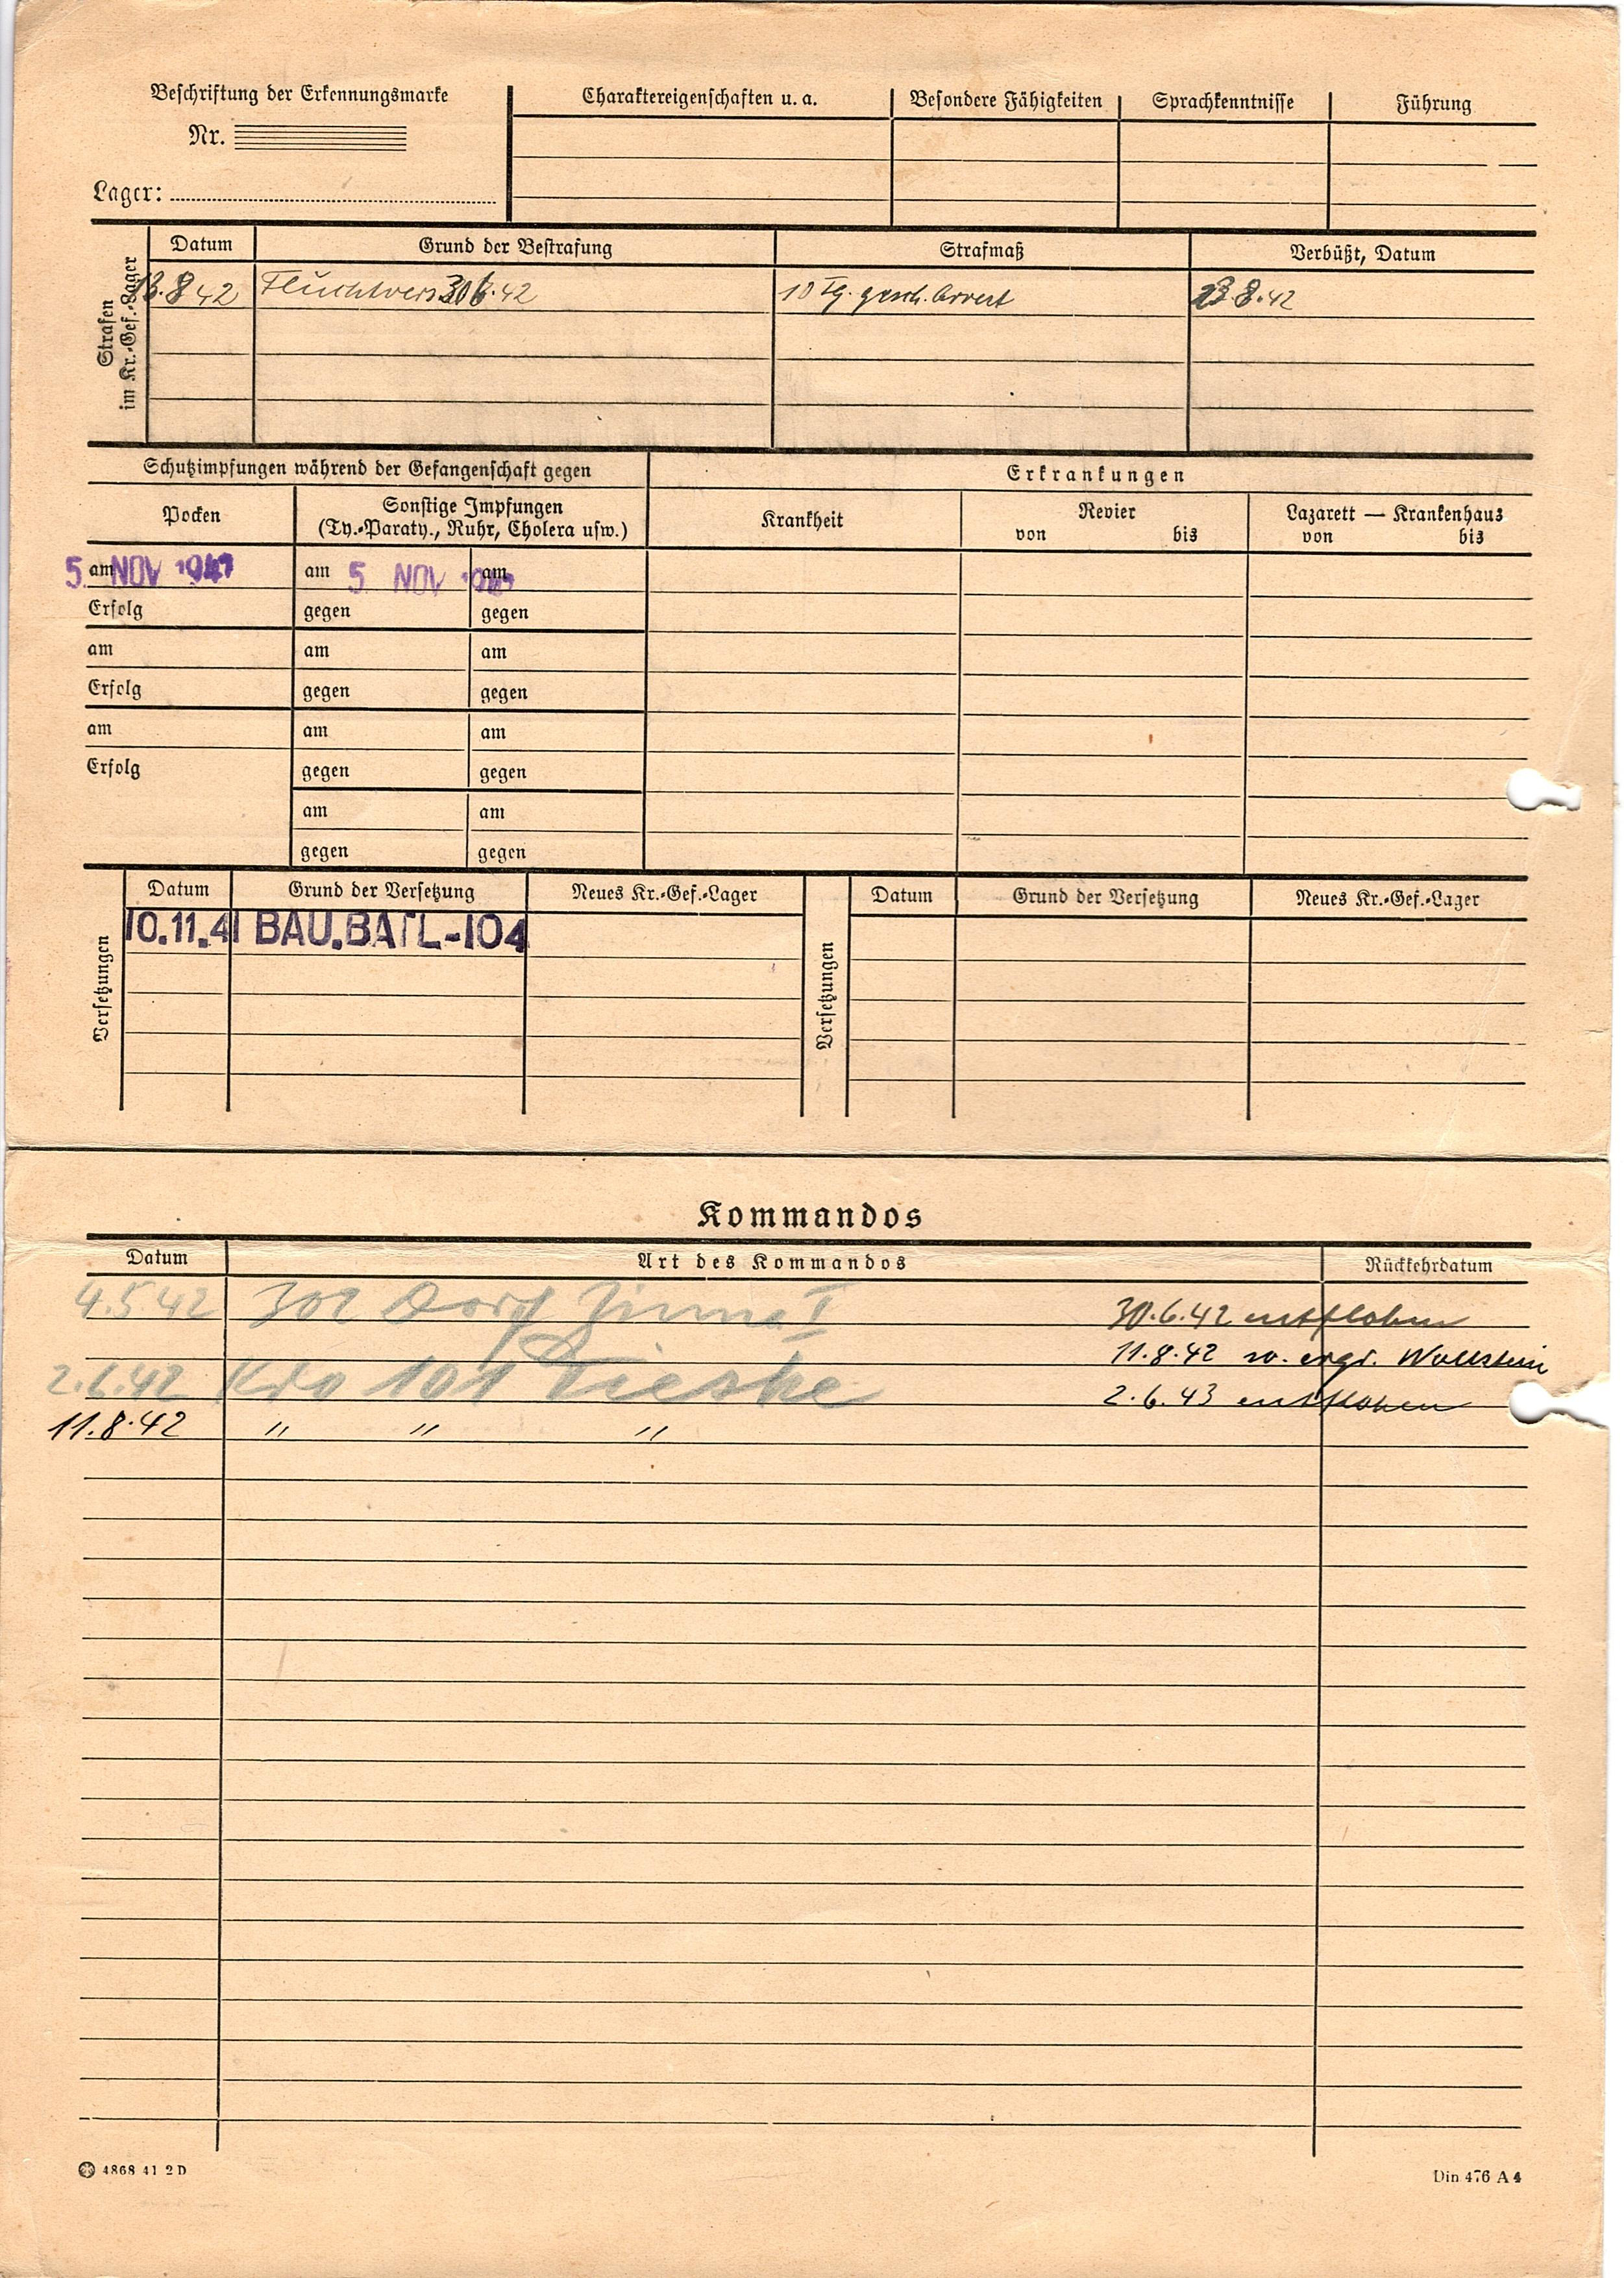 Beschriftung der Erkennungsmarke
Nr.
Lager:
Charaktereigenschaften u. a.
Besondere Fähigkeiten
Sprachkenntnisse
Führung
Strafen im Kr.-Gef.-Lager
Datum
Grund der Bestrafung
Strafmaß
Verbüßt, Datum
13.8.42
Fluchtvers. 30.6.42
10 Tg. gesch. Arrest
23.8.42
Schutzimpfungen während der Gefangenschaft gegen
Erkrankungen
Pocken
Sonstige Impfungen
(Ty.-Paraty., Ruhr, Cholera usw.)
Krankheit
Revier
von bis
Lazarett — Krankenhaus
von bis
am 5. NOV 1941
am 5. NOV 1941
am
Erfolg
gegen
gegen
am
am
am
Erfolg
gegen
gegen
am
am
am
Erfolg
gegen
gegen
am
am
gegen
gegen
Versetzungen
Datum
Grund der Versetzung
Neues Kr.-Gef.-Lager
Versetzungen
Datum
Grund der Versetzung
Neues Kr.-Gef.-Lager
10.11.41 BAU.BATL-104
Kommandos
Datum
Art des Kommandos
Rückkehrdatum
4.5.42 302 Dorf Zinna I 30.6.42 entflohen
11.8.42 w. ergr. Wollstein
2.6.42 Kdo 101 2.6.43 entflohen
11.8.42 " " "
4868 41 2 D
Din 476 A 4